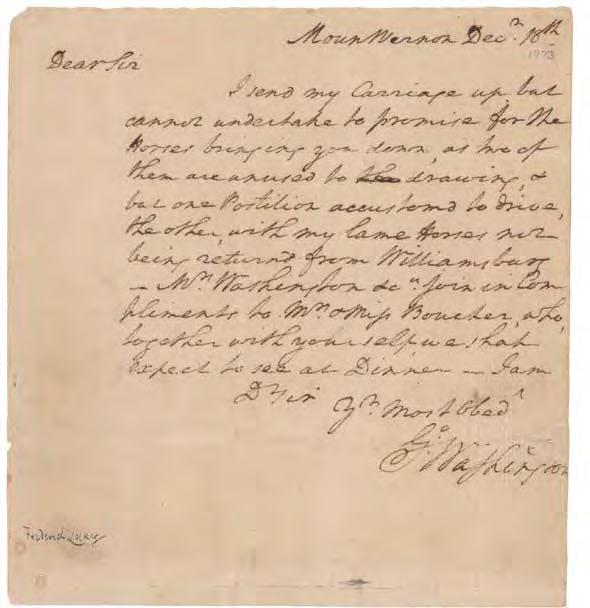 Mount Vernon Decr. 16th
1773
Dear Sir
I send my Carriage up, but
cannot undertake to promise for the
Horses bringing you down, as two of
them are unused to the drawing, &
but one Postilion accustomd to drive,
the other, with my lame Horses not
being returnd from Williamsburg
– Mrs. Washington &ca. join in Com
pliments to Mrs. & Miss Boucher, who,
together with yourself, we shall
expect to see at Dinner – I am
Dr Sir Yr. Most Obedt
Go. Washington